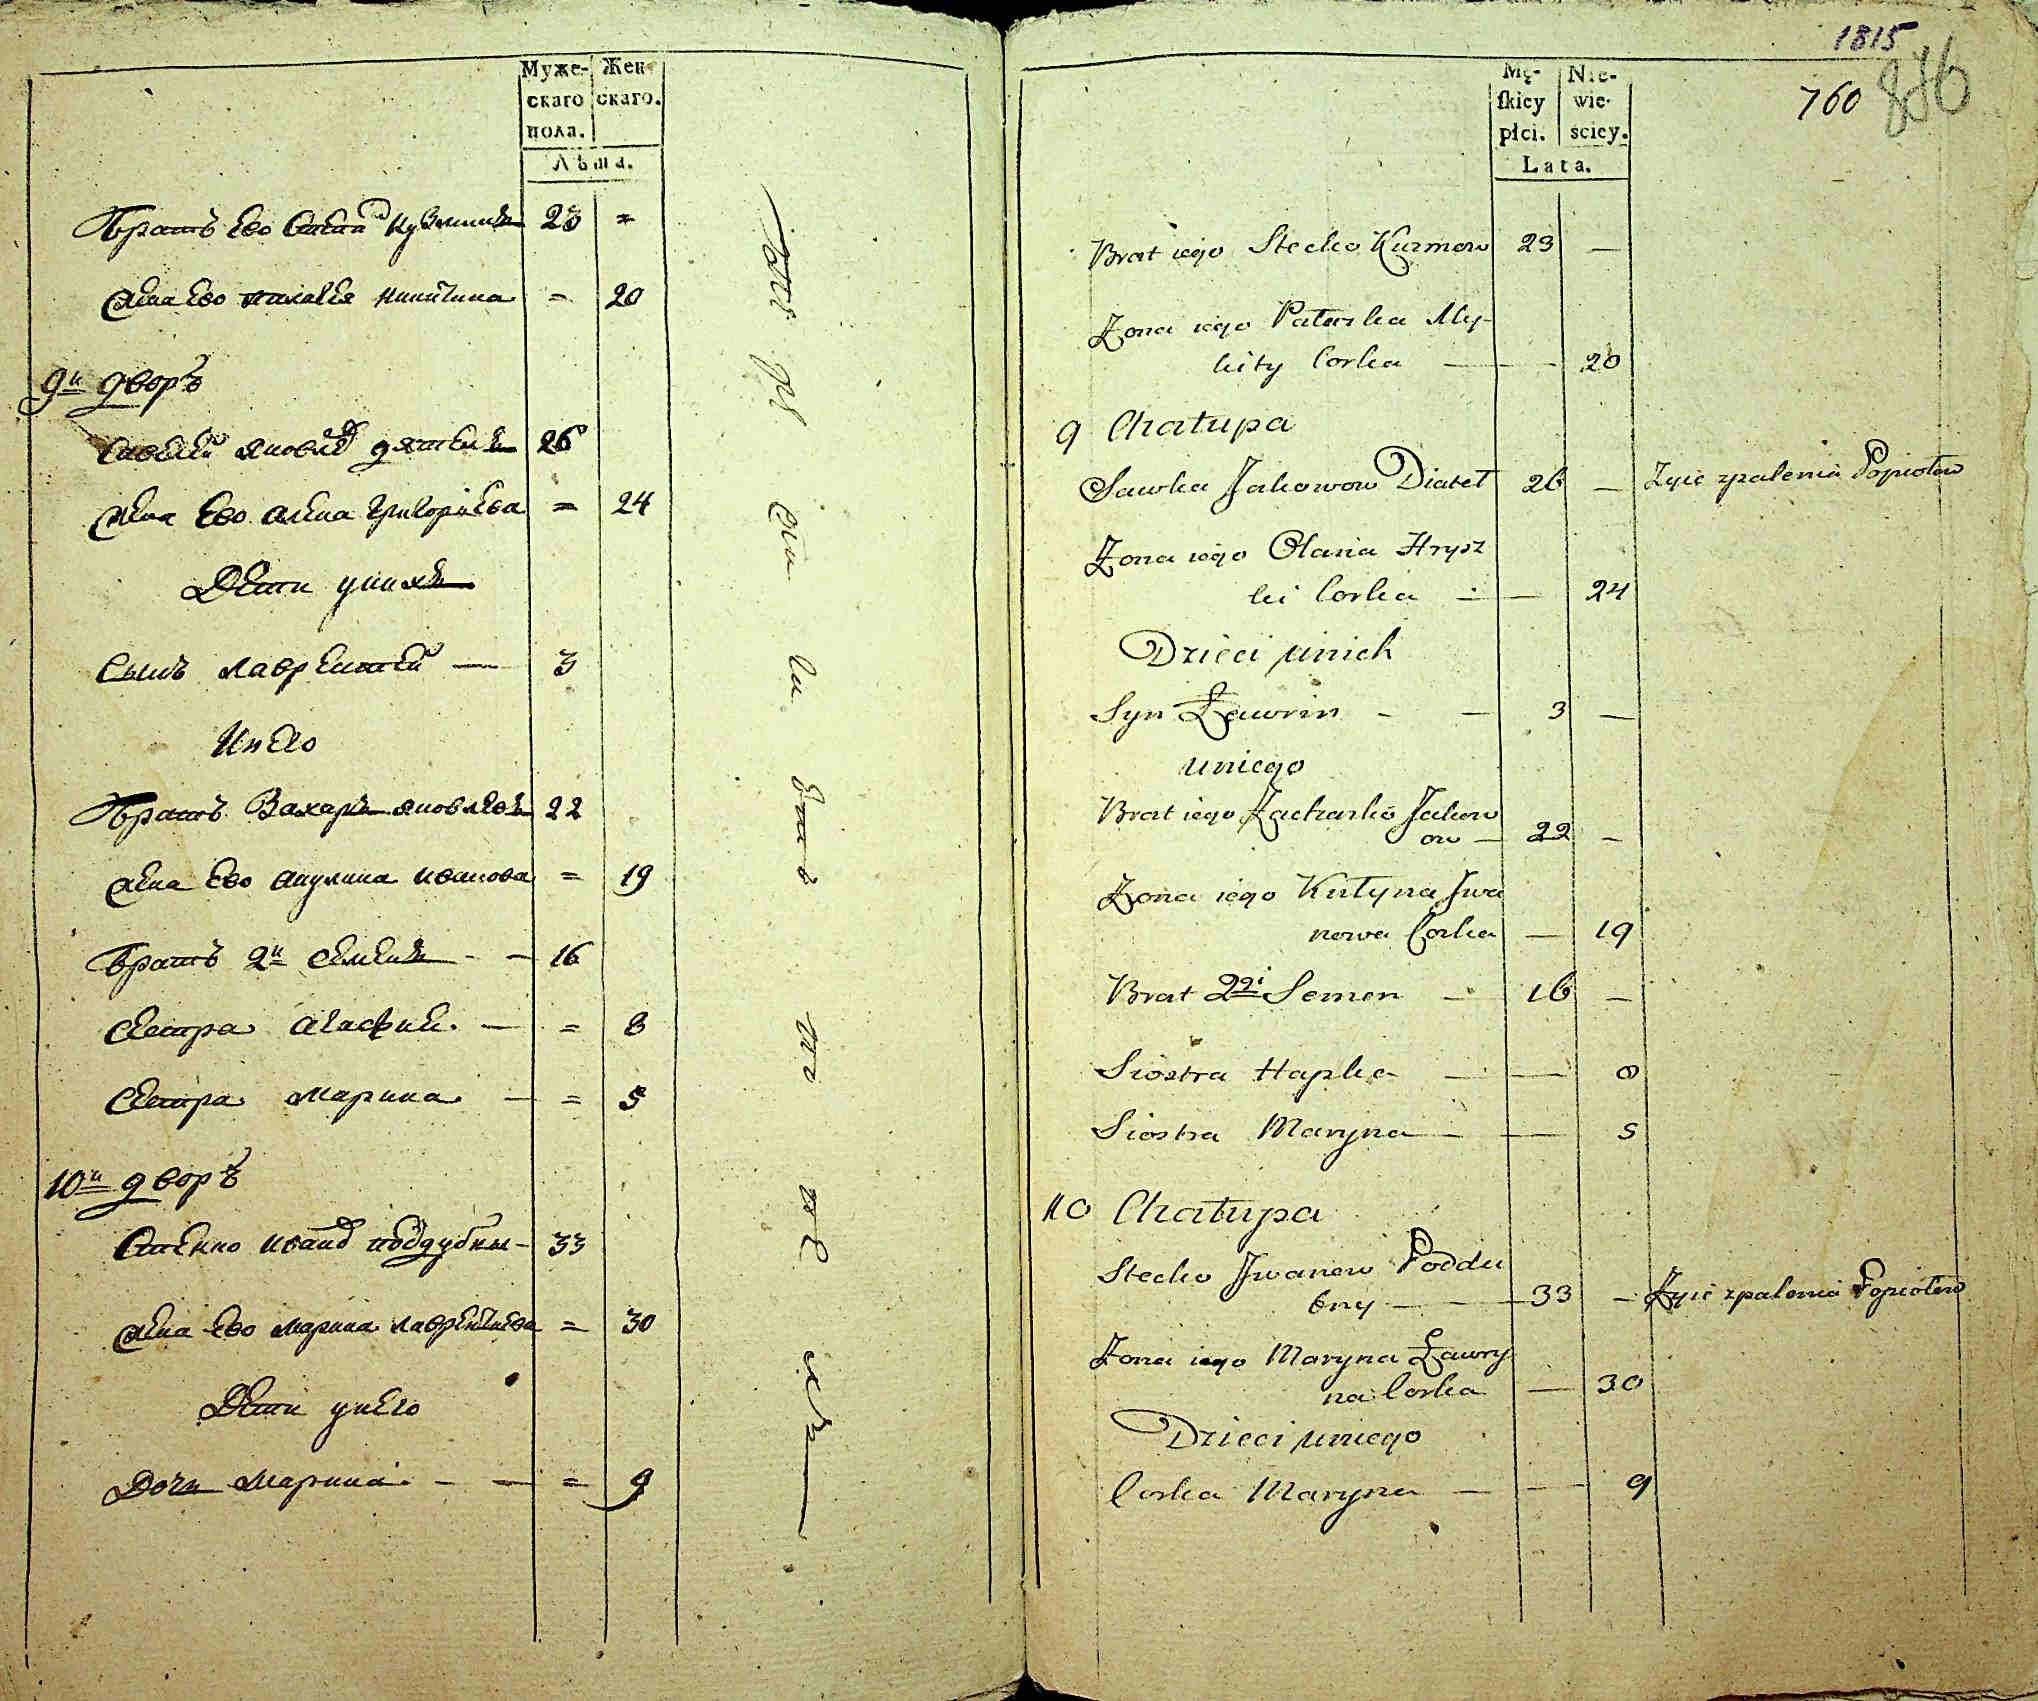 Муже- Жен-
скаго скаго.
пола.
Лѣта.
Братъ ево Кузминъ 23 =
Жена ево Палагея Никитина = 20
9й дворъ
Савелий Яковлев Дятелъ 26
Жена ево Алена Григориева = 24
Дети у нихъ
Сынъ Лаврентей — 3
У него
Братъ Захаръ Яковлевъ 22
Жена ево Акулина Иванова = 19
Братъ 2й Семенъ - — 16
Сестра Агафия — = 8
Сестра Марина — = 5
10й дворъ
Степко Иванов Поддубны - 33
Жена ево Марина Лаврентиева = 30
Дети у него
Дочь Марина - — = 9
1815
760 886
Mę- Nie-
skiey wie-
płci. sciey.
Lata.
Brat iego Stecko Kuzmow 23 —
Zona iego Palaszka My-
kity Corka — — 20
9 Chałupa
Sawka Jakowow Diateł 26 — Zyie zpalenia Popiołow
Zona iego Olana Hrysz
ki Corka — — 24
Dzieci unich
Syn Ławrin - — 3 —
uniego
Brat iego Zacharko Jakow
ow — 22 —
Zona iego Kulyna Jwa
nowa Corka — 19
Brat 2gi Semen — 16 —
Siostra Hapka — — 8
Siostra Maryna — — 5
10 Chałupa
Stecko Jwanow Poddu
bny — — 33 — Zyie zpalenia Popiołow
Zona iego Maryna Ławry
na Corka — 30
Dzieci uniego
Corka Maryna — — 9